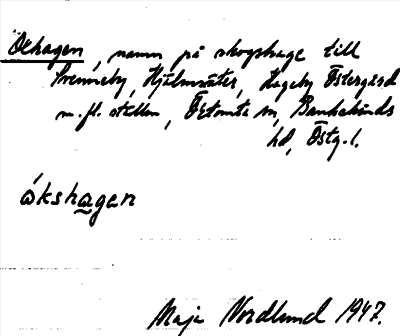 Oxhagen, namn på skogshage till
Svenneby, Hjälmsäter, Hageby Östergård
m. fl. ställen, Östomta sn, Bankekinds
hd, Östg. l.
ókshagen
Maja Nordlund 1947.